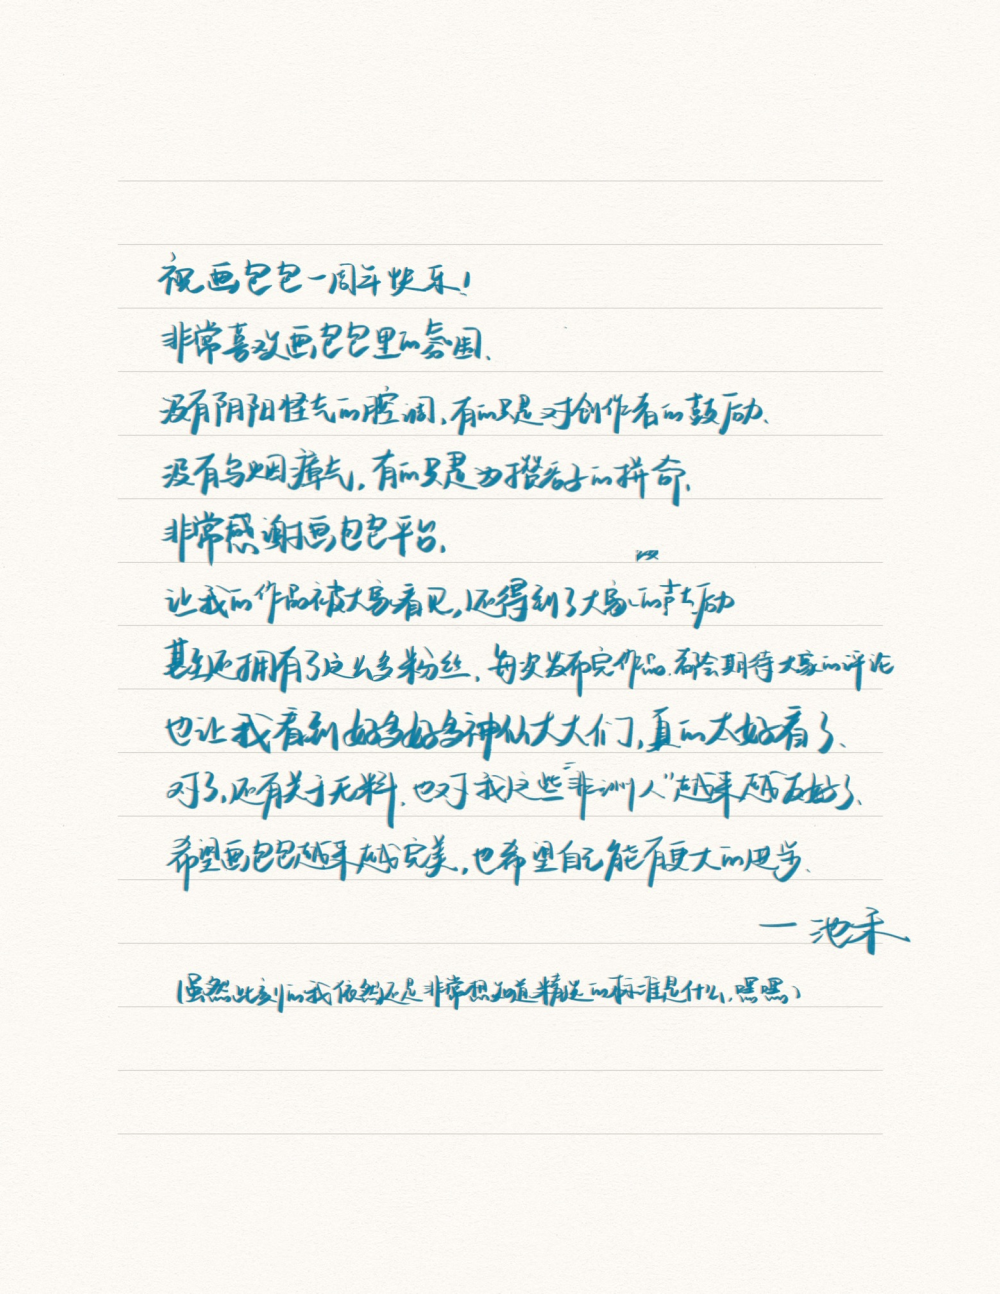 祝画包包一周年快乐！
非常喜欢画包包里的氛围、
没有阴阳怪气的腔调、有的只是对创作者的鼓励、
没有乌烟瘴气，有的只是为攒谷子的拼命、
非常感谢画包包平台、
让我的作品被大家看见，还得到了大家的鼓励
甚至还拥有了这么多粉丝、每次发布完作品、都会期待大家的评论
也让我看到好多好多神仙太太们，真的太好看了、
对了，还有关于无料、也对我这些“非洲人”越来越友好了、
希望画包包越来越完美，也希望自己能有更大的进步、
一池禾
（虽然此刻的我依然还是非常想知道精选的标准是什么、嘿嘿）